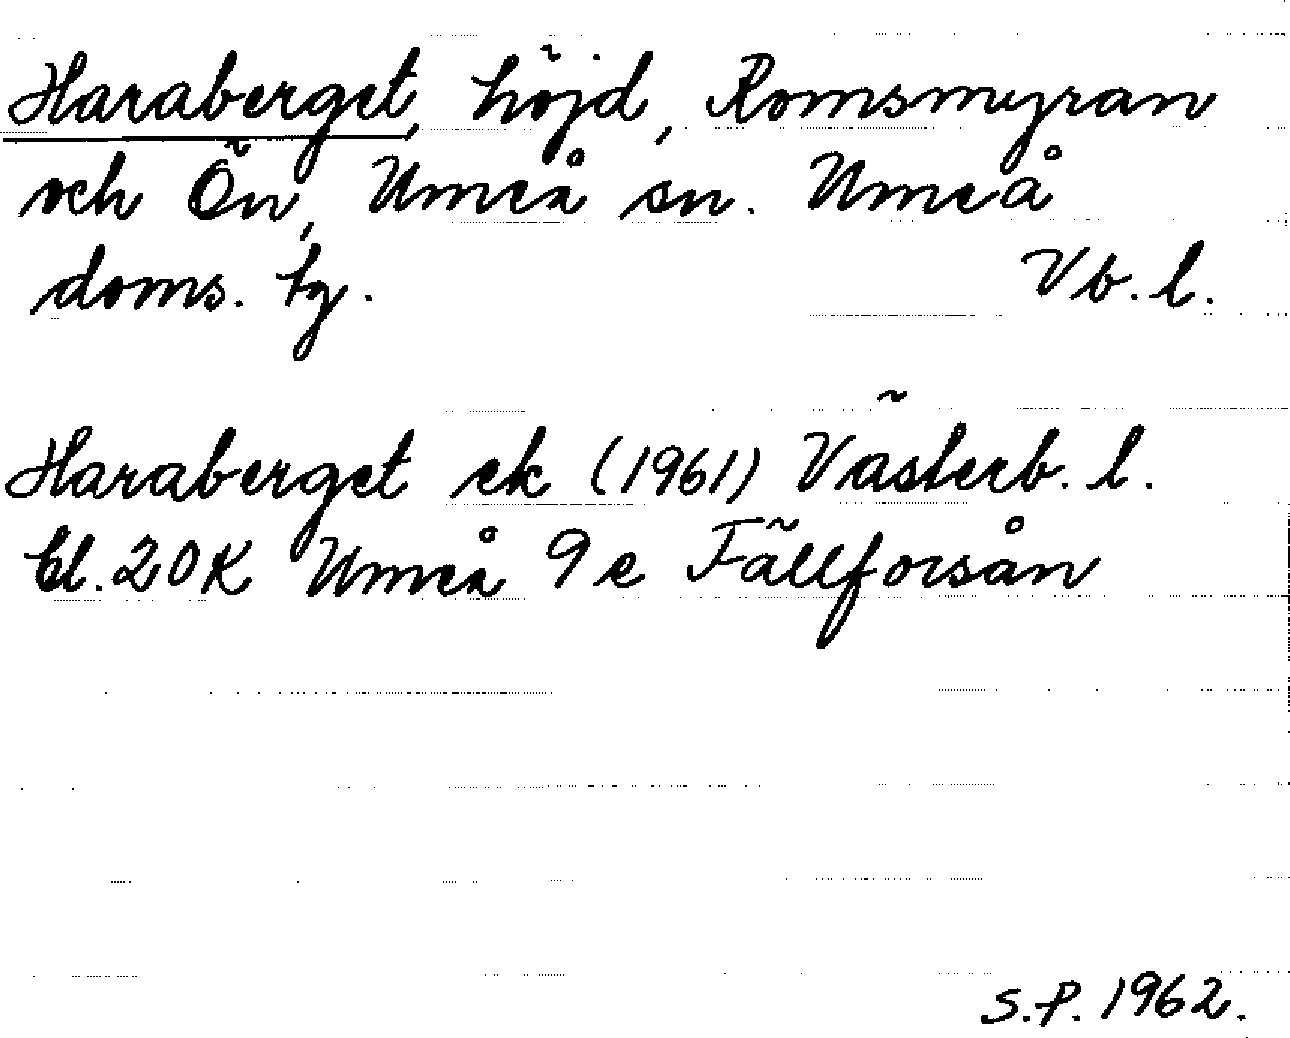 Haraberget, höjd, Romsmyran
och Ön, Umeå sn. Umeå
doms. tg. Vb. l.
Haraberget ek (1961) Västerb. l.
bl. 20K Umeå 9e Fällforsån
S.P. 1962.